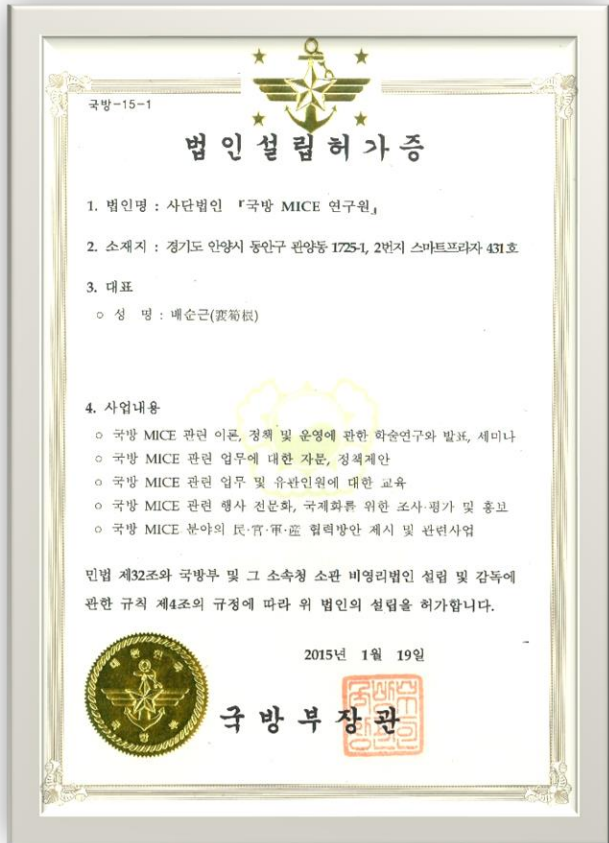 국방-15-1
법인설립허가증
1. 법인명 : 사단법인 『국방 MICE 연구원』
2. 소재지 : 경기도 안양시 동안구 관양동 1725-1, 2번지 스마트프라자 431호
3. 대표
○ 성 명 : 배순근(裵筍根)
4. 사업내용
○ 국방 MICE 관련 이론, 정책 및 운영에 관한 학술연구와 발표, 세미나
○ 국방 MICE 관련 업무에 대한 자문, 정책제안
○ 국방 MICE 관련 업무 및 유관인원에 대한 교육
○ 국방 MICE 관련 행사 전문화, 국제화를 위한 조사·평가 및 홍보
○ 국방 MICE 분야의 民·官·軍·産 협력방안 제시 및 관련사업
민법 제32조와 국방부 및 그 소속청 소관 비영리법인 설립 및 감독에
관한 규칙 제4조의 규정에 따라 위 법인의 설립을 허가합니다.
2015년 1월 19일
대한민국
국방부
국방부장관